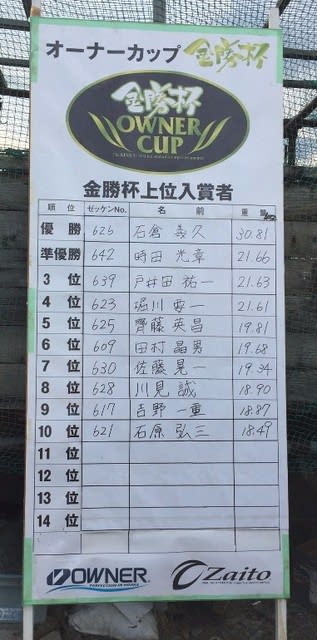 オーナーカップ 金勝杯
金勝杯
OWNER
CUP
金勝杯上位入賞者
順位 ゼッケンNo. 名前 重量
優勝 626 石倉 義久 30.81
準優勝 642 時田 光章 21.66
3位 639 戸井田 祐一 21.63
4位 623 堀川 要一 21.61
5位 625 齊藤 英昌 19.81
6位 609 田村 晶男 19.68
7位 630 佐藤 晃一 19.34
8位 628 川見 誠 18.90
9位 617 吉野 一重 18.87
10位 621 石原 弘三 18.49
11位
12位
13位
14位
OWNER Zaito